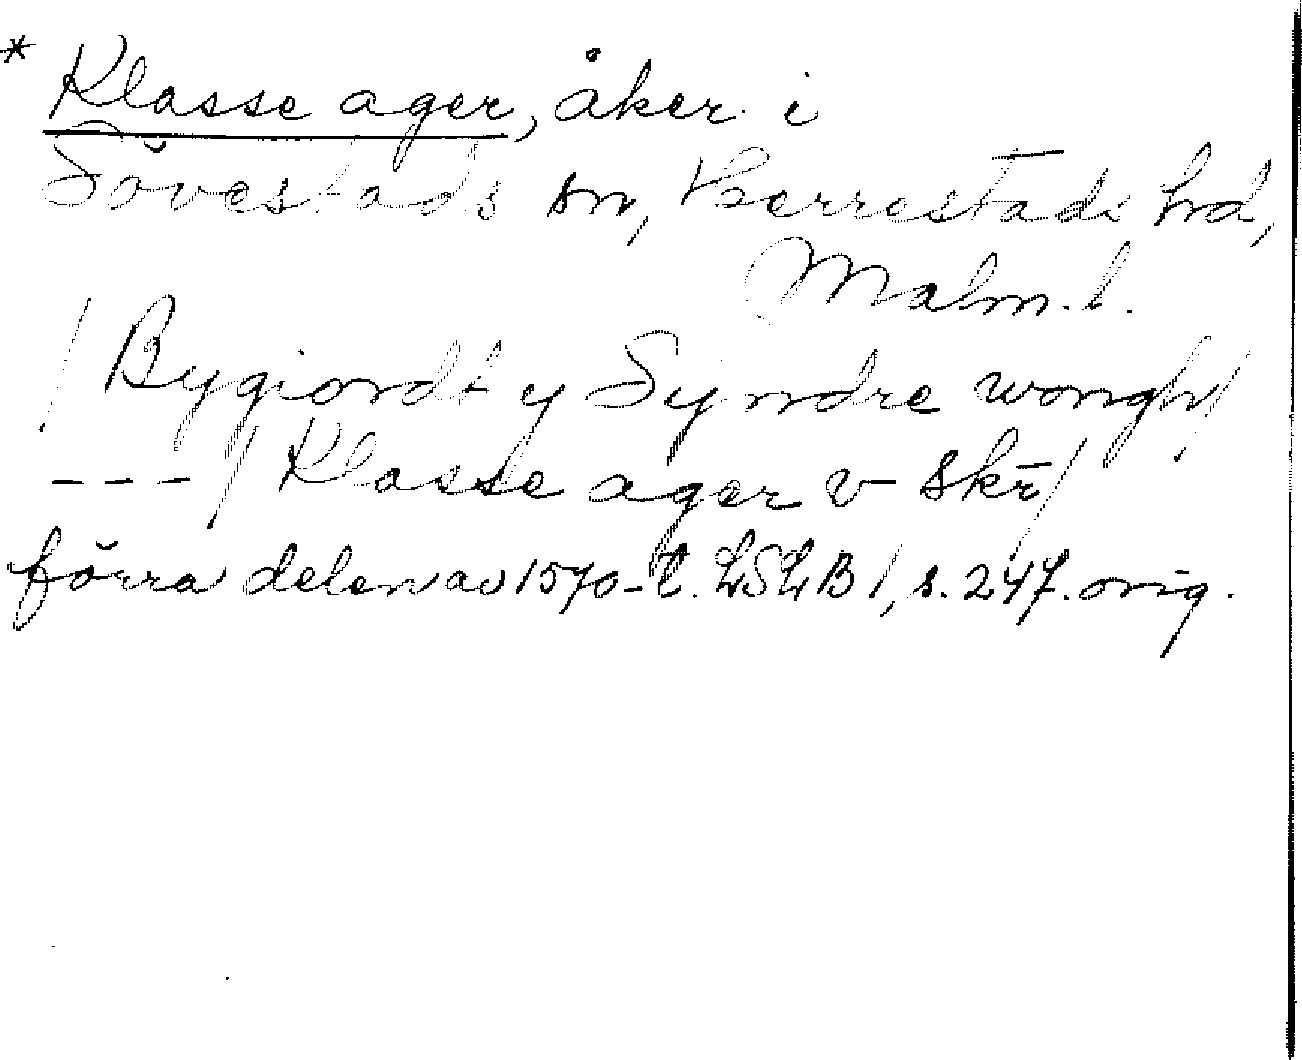 * Klasse ager, åker i
Sövestads sn, Herrestads hrd,
Malm. l.
/ Bygiordt y Syndre wongh /
--- / Klasse ager v skr̄ /
förra delen av 1570-t. LSLB 1, s. 247. orig.